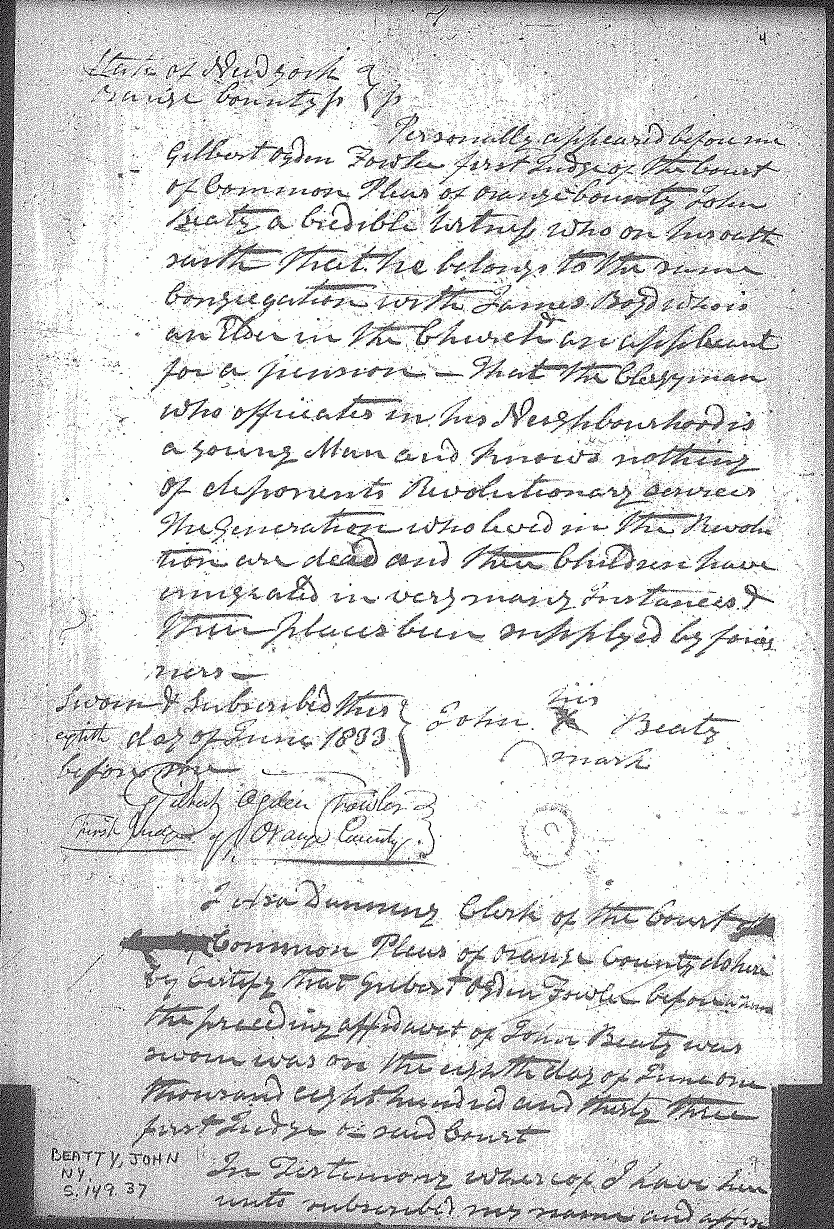 4
State of New York }
Orange County ss } ss
Personally appeared before me
Gilbert Ogden Fowler first Judge of the Court
of Common Pleas of Orange County John
Beaty a Credible Witness who on his oath
saith that he belongs to the same
Congregation with James Boyd who is
an Elder in the Church & an applicant
for a pension – That the Clergyman
who officiates in his Neighbourhood is
a young Man and knows nothing
of deponents Revolutionary services
The Generation who lived in the Revolu
tion are dead and their Children have
emigrated in very many Instances &
their places been supplyed by foreig
ners –
Sworn & Subscribed this
eighth day of June 1833
before me
John his X mark Beaty
Gilbert Ogden Fowler
First Judge of Orange County.
I Asa Dunning Clerk of the Court of
Common Pleas of Orange County do here
by Certify that Gilbert Ogden Fowler before whom
the preceeding affidavit of John Beaty was
sworn was on the eighth day of June one
thousand eight hundred and thirty three
first Judge of said Court
In Testimony whereof I have here
unto subscribed my name and affix
BEATTY, JOHN
NY.
S. 149. 37